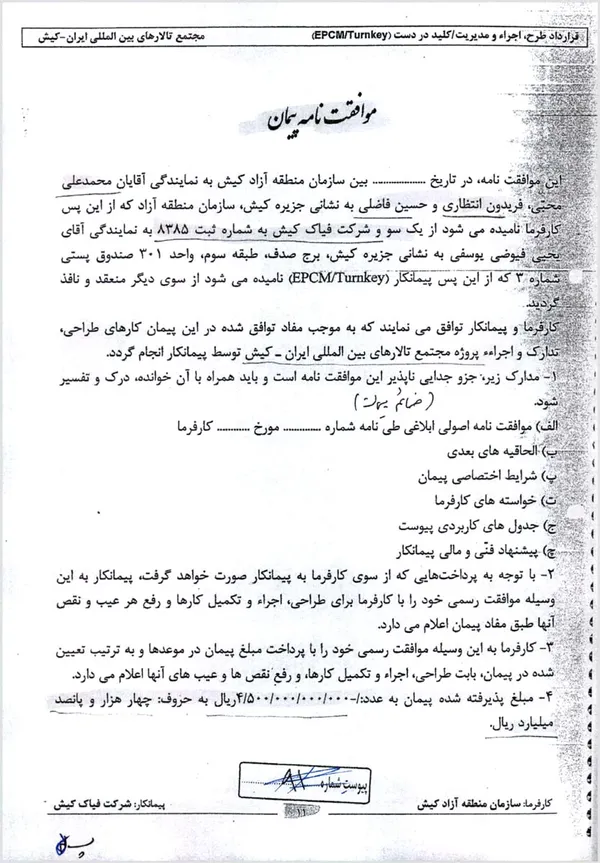 قرارداد طرح، اجراء و مدیریت/کلید در دست (EPCM/Turnkey) مجتمع تالارهای بین المللی ایران-کیش
موافقت نامه پیمان
این موافقت نامه، در تاریخ .................... بین سازمان منطقه آزاد کیش به نمایندگی آقایان محمدعلی
محبّی، فریدون انتظاری و حسین فاضلی به نشانی جزیره کیش، سازمان منطقه آزاد که از این پس
کارفرما نامیده می شود از یک سو و شرکت فیاک کیش به شماره ثبت ۸۳۸۵ به نمایندگی آقای
یحیی فیوضی یوسفی به نشانی جزیره کیش، برج صدف، طبقه سوم، واحد ۳۰۱ صندوق پستی
شماره ۳ که از این پس پیمانکار (EPCM/Turnkey) نامیده می شود از سوی دیگر منعقد و نافذ
گردید.
کارفرما و پیمانکار توافق می نمایند که به موجب مفاد توافق شده در این پیمان کارهای طراحی،
تدارک و اجراء پروژه مجتمع تالارهای بین المللی ایران – کیش توسط پیمانکار انجام گردد.
۱- مدارک زیر، جزو جدایی ناپذیر این موافقت نامه است و باید همراه با آن خوانده، درک و تفسیر
شود.
الف) موافقت نامه اصولی ابلاغی طی نامه شماره .............. مورخ ............ کارفرما
ب) الحاقیه های بعدی
پ) شرایط اختصاصی پیمان
ت) خواسته های کارفرما
ج) جدول های کاربردی پیوست
چ) پیشنهاد فنّی و مالی پیمانکار
۲- با توجه به پرداخت‌هایی که از سوی کارفرما به پیمانکار صورت خواهد گرفت، پیمانکار به این
وسیله موافقت رسمی خود را با کارفرما برای طراحی، اجراء و تکمیل کارها و رفع هر عیب و نقص
آنها طبق مفاد پیمان اعلام می دارد.
۳- کارفرما به این وسیله موافقت رسمی خود را با پرداخت مبلغ پیمان در موعدها و به ترتیب تعیین
شده در پیمان، بابت طراحی، اجراء و تکمیل کارها، و رفع نقص ها و عیب های آنها اعلام می دارد.
۴- مبلغ پذیرفته شده پیمان به عدد:/-۴/۵۰۰/۰۰۰/۰۰۰/۰۰۰ریال به حروف: چهار هزار و پانصد
میلیارد ریال.
پیوست شماره
کارفرما: سازمان منطقه آزاد کیش پیمانکار: شرکت فیاک کیش
۱۱